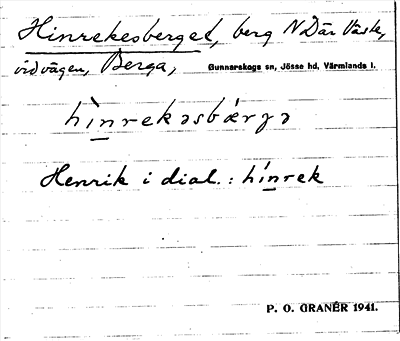 Hinrekesberget, berg N Där Väste,
vid vägen, Berga, Gunnarskogs sn, Jösse hd, Värmlands l.
hì̠nrekəsbǽrjə
Henrik i dial.: hí̠nrek
P. O. GRANÉR 1941.